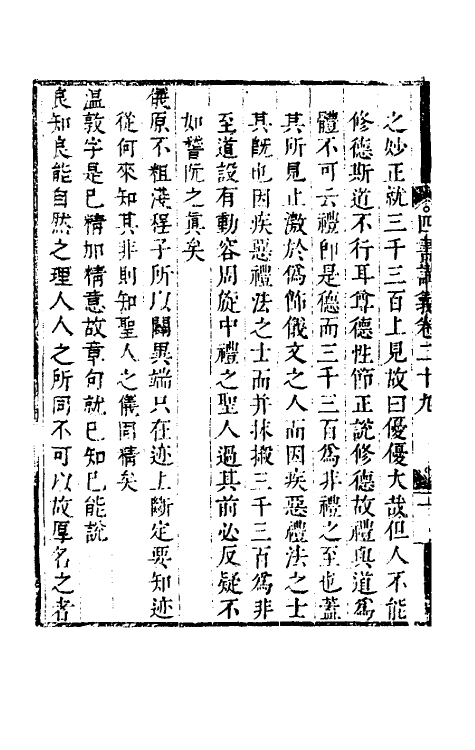 四書講義卷二十九
之妙正就三千三百上見故曰優優大哉但人不能
修德斯道不行耳尊德性節正說修德故禮與道為
體不可云禮即是德而三千三百為非禮之至也蓋
其所見止激於偽飾儀文之人而因疾惡禮法之士
其旣也因疾惡禮法之士而并抹摋三千三百為非
至道設有動容周旋中禮之聖人過其前必反疑不
如嵇阮之眞矣
儀原不粗淺程子所以闢異端只在迹上斷定要知迹
從何來知其非則知聖人之儀同精矣
温敦字是已精加精意故章句就已知已能說
良知良能自然之理人人之所同不可以故厚名之者